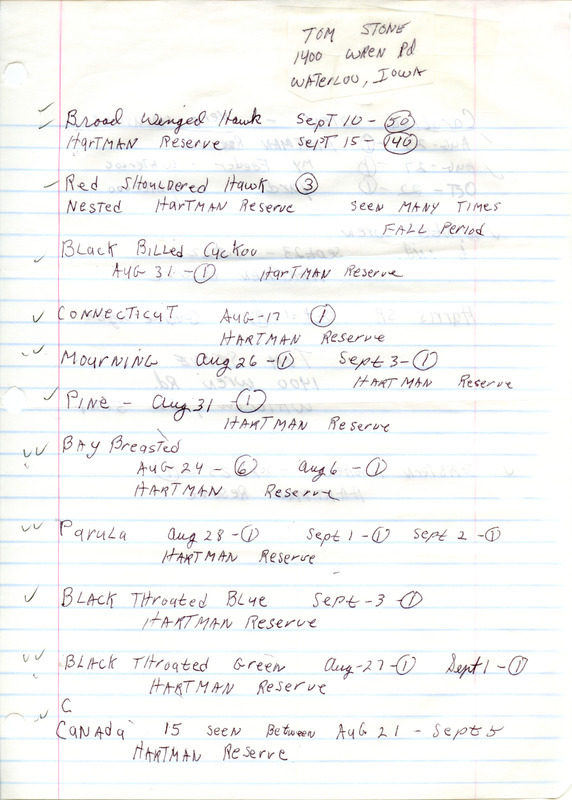 TOM STONE
1400 WREN Rd
WATERLOO, IOWA
Broad Winged Hawk Sept 10 - 50
HARTMAN Reserve Sept 15 - 140
Red SHOULDERED HAWK 3
NESTED HARTMAN Reserve SEEN MANY TIMES
FALL Period
BLACK BILLED CUCKOO
AUG 31 - 1 HARTMAN Reserve
CONNECTICUT AUG-17 1
HARTMAN Reserve
MOURNING Aug 26 - 1 Sept 3 - 1
HARTMAN Reserve
PINE - Aug 31 - 1
HARTMAN Reserve
BAY Breasted
AUG 24 - 6 Aug 6 - 1
HARTMAN Reserve
PARULA Aug 28 - 1 Sept 1 - 1 Sept 2 - 1
HARTMAN Reserve
BLACK THroated BLUE Sept - 3 - 1
HARTMAN Reserve
BLACK THroated Green Aug-27 - 1 Sept 1 - 1
HARTMAN Reserve
C
CANADA 15 SEEN Between AUG 21 - Sept 5
HARTMAN Reserve